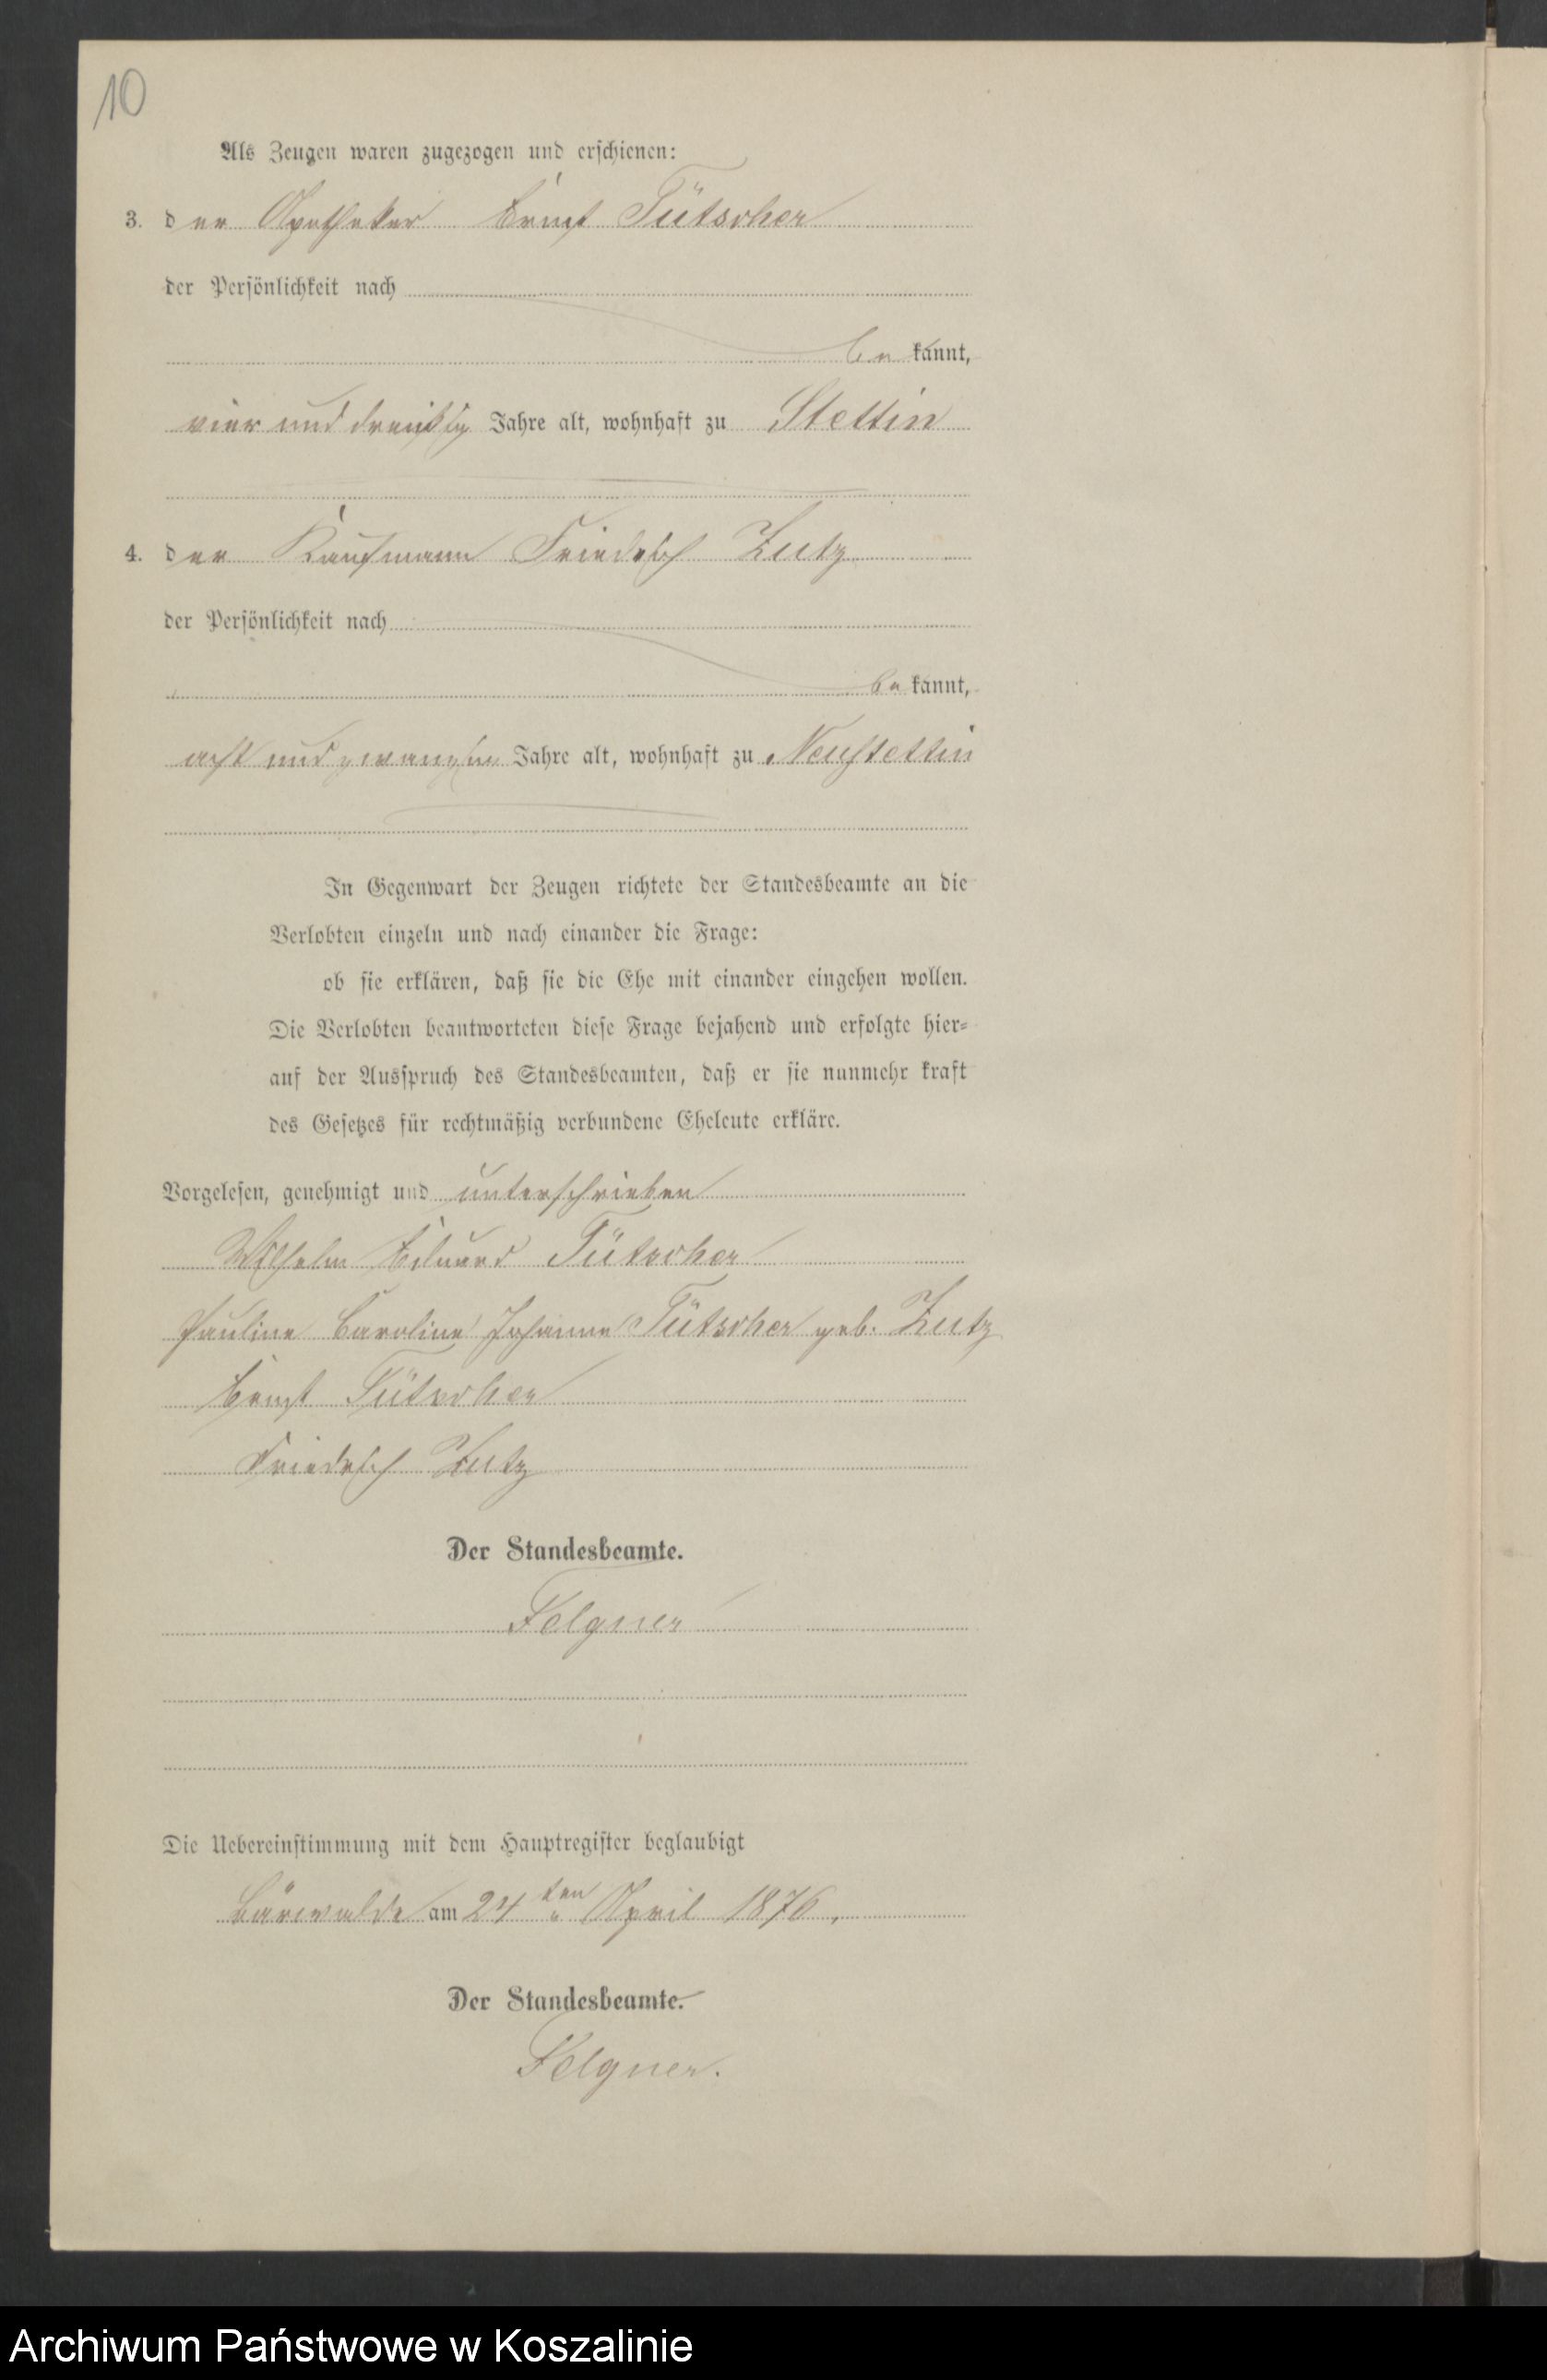 10
Als Zeugen waren zugezogen und erschienen:
3. der Apotheker Ernst Tütscher
der Persönlichkeit nach
bekannt,
vier und dreißig Jahre alt, wohnhaft zu Stettin
4. der Kaufmann Friedrich Zutz
der Persönlichkeit nach
bekannt,
acht und zwanzig Jahre alt, wohnhaft zu Neustettin
In Gegenwart der Zeugen richtete der Standesbeamte an die
Verlobten einzeln und nach einander die Frage:
ob sie erklären, daß sie die Ehe mit einander eingehen wollen.
Die Verlobten beantworteten diese Frage bejahend und erfolgte hier=
auf der Ausspruch des Standesbeamten, daß er sie nunmehr kraft
des Gesetzes für rechtmäßig verbundene Eheleute erkläre.
Vorgelesen, genehmigt und unterschrieben
Wilhelm Eduard Tütscher
Pauline Caroline Johanne Tütscher geb. Zutz
Ernst Tütscher
Friedrich Zutz
Der Standesbeamte.
Felgner
Die Uebereinstimmung mit dem Hauptregister beglaubigt
Bärwalde am 24ten April 1876.
Der Standesbeamte.
Felgner.
Archiwum Państwowe w Koszalinie